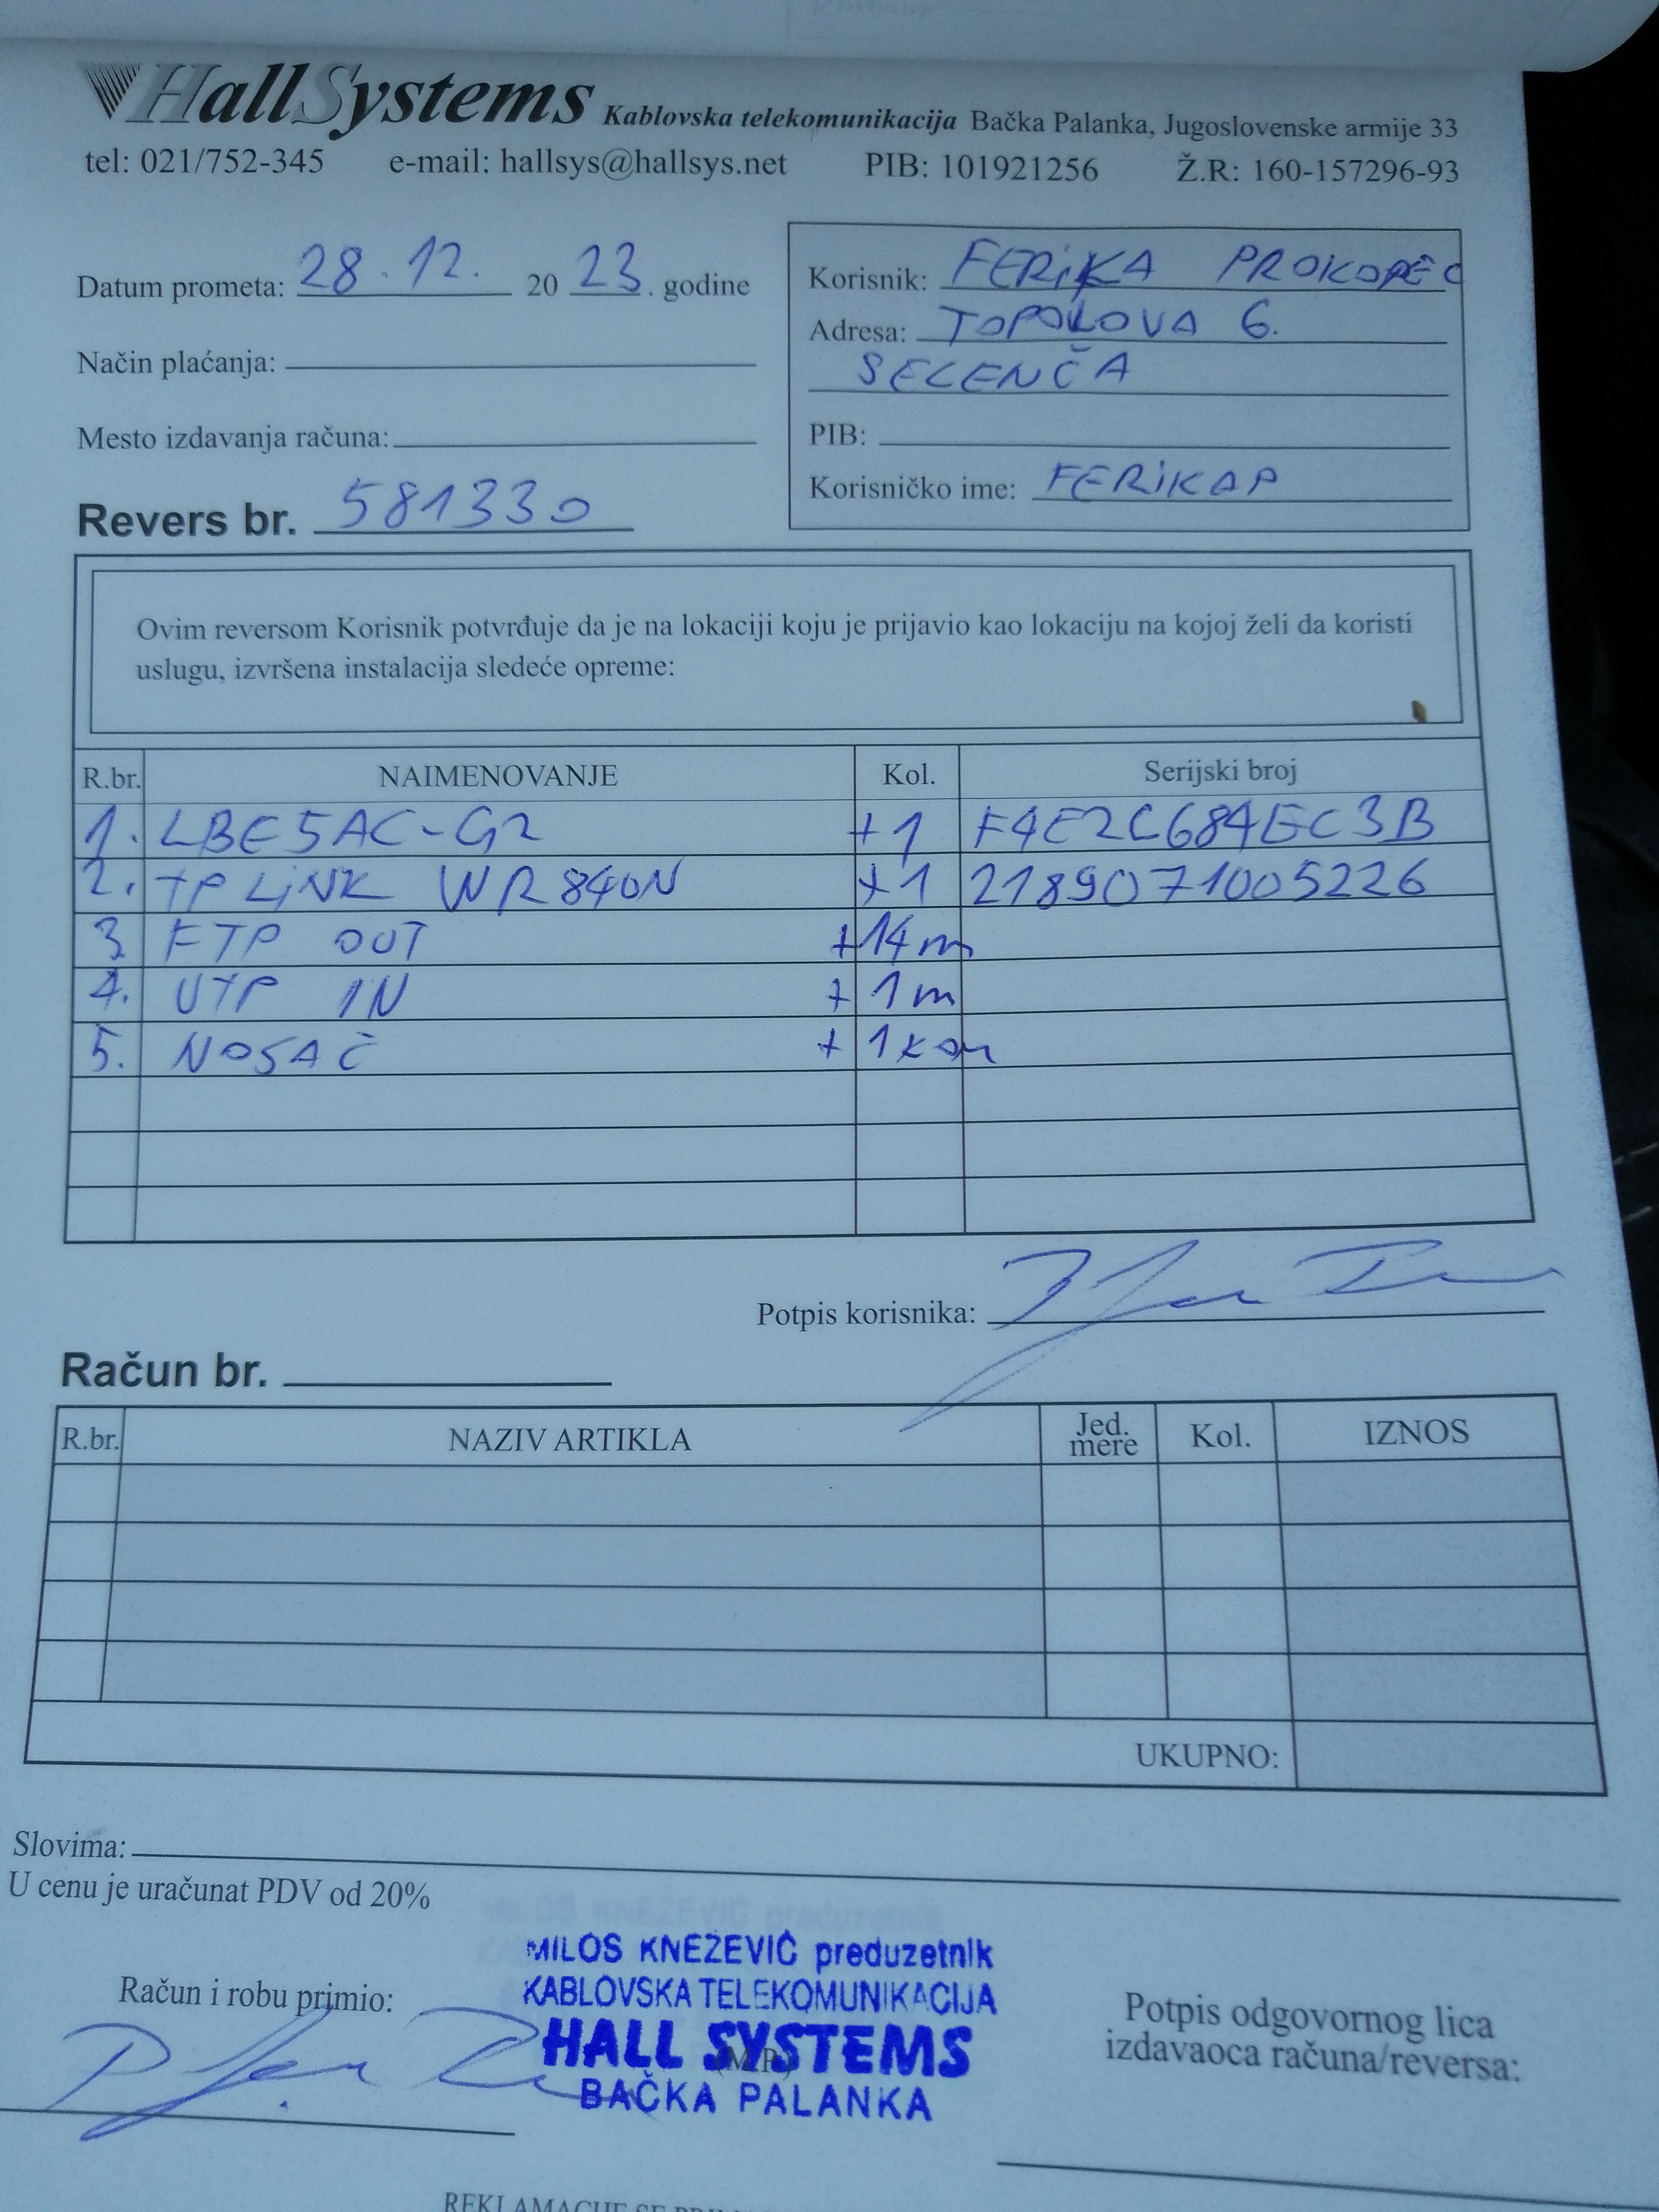 HallSystems Kablovska telekomunikacija Bačka Palanka, Jugoslovenske armije 33
tel: 021/752-345 e-mail: hallsys@hallsys.net PIB: 101921256 Ž.R: 160-157296-93
Datum prometa: 28.12. 2023. godine
Način plaćanja:
Mesto izdavanja računa:
Revers br. 581330
Korisnik: FERIKA PROKOPEC
Adresa: TOPOLOVA 6.
SELENČA
PIB:
Korisničko ime: FERIKAP
Ovim reversom Korisnik potvrđuje da je na lokaciji koju je prijavio kao lokaciju na kojoj želi da koristi
uslugu, izvršena instalacija sledeće opreme:
R.br. NAIMENOVANJE Kol. Serijski broj
1. LBE5AC-G2 +1 F4E2C684EC3B
2. TP LiNK WR840N +1 2189071005226
3. FTP OUT +14m
4. UTP IN + 1m
5. NOSAČ + 1kom
Potpis korisnika:
Račun br.
R.br. NAZIV ARTIKLA Jed. mere Kol. IZNOS
UKUPNO:
Slovima:
U cenu je uračunat PDV od 20%
MILOS KNEŽEVIĆ preduzetnik
KABLOVSKA TELEKOMUNIKACIJA
HALL SYSTEMS
BAČKA PALANKA
Račun i robu primio:
(M.P.)
Potpis odgovornog lica
izdavaoca računa/reversa: